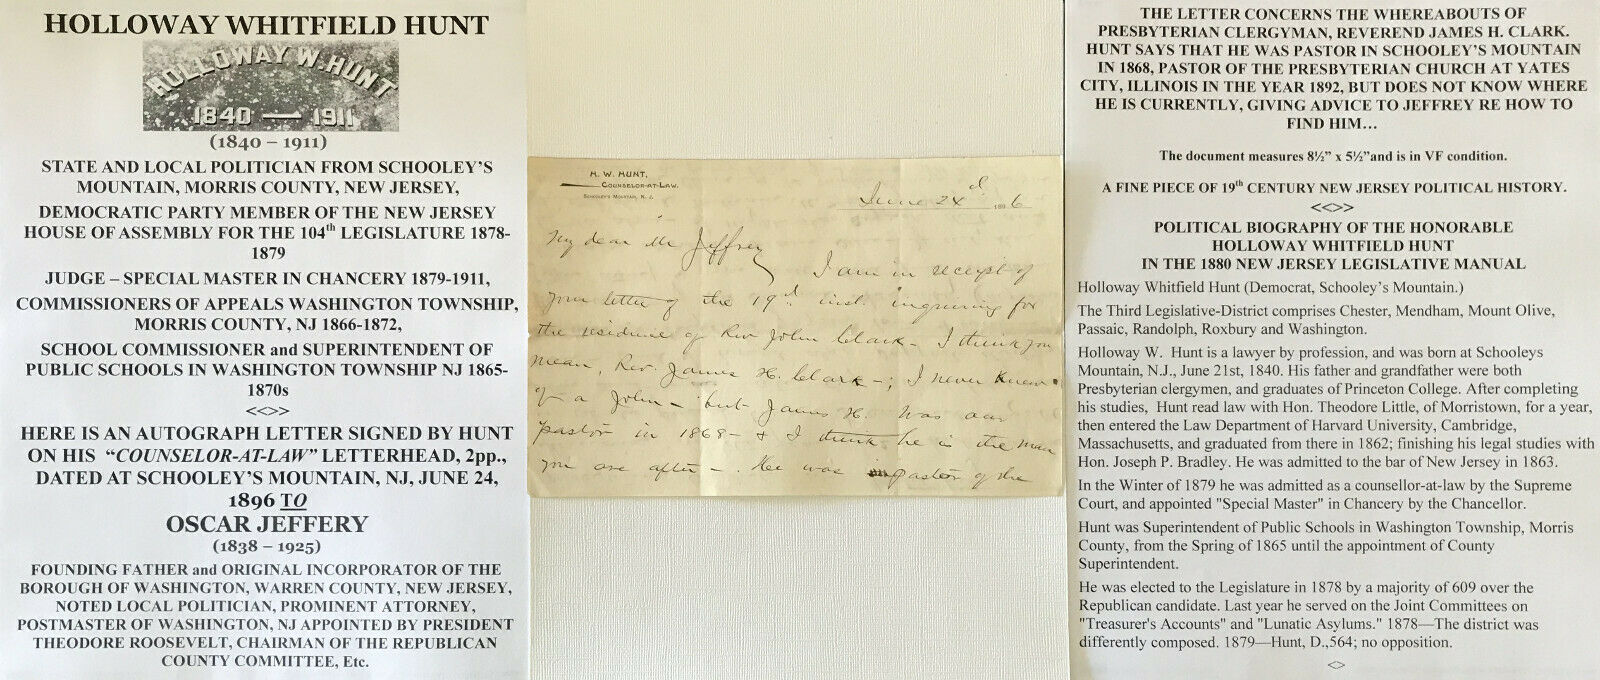 HOLLOWAY WHITFIELD HUNT
HOLLOWAY W. HUNT
1840 — 1911
(1840 – 1911)
STATE AND LOCAL POLITICIAN FROM SCHOOLEY'S
MOUNTAIN, MORRIS COUNTY, NEW JERSEY,
DEMOCRATIC PARTY MEMBER OF THE NEW JERSEY
HOUSE OF ASSEMBLY FOR THE 104th LEGISLATURE 1878-
1879
JUDGE – SPECIAL MASTER IN CHANCERY 1879-1911,
COMMISSIONERS OF APPEALS WASHINGTON TOWNSHIP,
MORRIS COUNTY, NJ 1866-1872,
SCHOOL COMMISSIONER and SUPERINTENDENT OF
PUBLIC SCHOOLS IN WASHINGTON TOWNSHIP NJ 1865-
1870s
<<>>
HERE IS AN AUTOGRAPH LETTER SIGNED BY HUNT
ON HIS "COUNSELOR-AT-LAW" LETTERHEAD, 2pp.,
DATED AT SCHOOLEY'S MOUNTAIN, NJ, JUNE 24,
1896 TO
OSCAR JEFFERY
(1838 – 1925)
FOUNDING FATHER and ORIGINAL INCORPORATOR OF THE
BOROUGH OF WASHINGTON, WARREN COUNTY, NEW JERSEY,
NOTED LOCAL POLITICIAN, PROMINENT ATTORNEY,
POSTMASTER OF WASHINGTON, NJ APPOINTED BY PRESIDENT
THEODORE ROOSEVELT, CHAIRMAN OF THE REPUBLICAN
COUNTY COMMITTEE, Etc.
H. W. HUNT,
COUNSELOR-AT-LAW.
SCHOOLEY'S MOUNTAIN, N. J.
June 24d 1896
My dear Mr Jeffrey
I am in receipt of
your letter of the 19d inst. inquiring for
the residence of Rev John Clark - I think you
mean, Rev. James H. Clark -; I never knew
of a John - but James H. was our
pastor in 1868 - & I think he is the man
you are after -. He was pastor of the
THE LETTER CONCERNS THE WHEREABOUTS OF
PRESBYTERIAN CLERGYMAN, REVEREND JAMES H. CLARK.
HUNT SAYS THAT HE WAS PASTOR IN SCHOOLEY'S MOUNTAIN
IN 1868, PASTOR OF THE PRESBYTERIAN CHURCH AT YATES
CITY, ILLINOIS IN THE YEAR 1892, BUT DOES NOT KNOW WHERE
HE IS CURRENTLY, GIVING ADVICE TO JEFFREY RE HOW TO
FIND HIM…
The document measures 8½" x 5½"and is in VF condition.
A FINE PIECE OF 19th CENTURY NEW JERSEY POLITICAL HISTORY.
<<>>
POLITICAL BIOGRAPHY OF THE HONORABLE
HOLLOWAY WHITFIELD HUNT
IN THE 1880 NEW JERSEY LEGISLATIVE MANUAL
Holloway Whitfield Hunt (Democrat, Schooley's Mountain.)
The Third Legislative-District comprises Chester, Mendham, Mount Olive,
Passaic, Randolph, Roxbury and Washington.
Holloway W. Hunt is a lawyer by profession, and was born at Schooleys
Mountain, N.J., June 21st, 1840. His father and grandfather were both
Presbyterian clergymen, and graduates of Princeton College. After completing
his studies, Hunt read law with Hon. Theodore Little, of Morristown, for a year,
then entered the Law Department of Harvard University, Cambridge,
Massachusetts, and graduated from there in 1862; finishing his legal studies with
Hon. Joseph P. Bradley. He was admitted to the bar of New Jersey in 1863.
In the Winter of 1879 he was admitted as a counsellor-at-law by the Supreme
Court, and appointed "Special Master" in Chancery by the Chancellor.
Hunt was Superintendent of Public Schools in Washington Township, Morris
County, from the Spring of 1865 until the appointment of County
Superintendent.
He was elected to the Legislature in 1878 by a majority of 609 over the
Republican candidate. Last year he served on the Joint Committees on
"Treasurer's Accounts" and "Lunatic Asylums." 1878—The district was
differently composed. 1879—Hunt, D.,564; no opposition.
<>